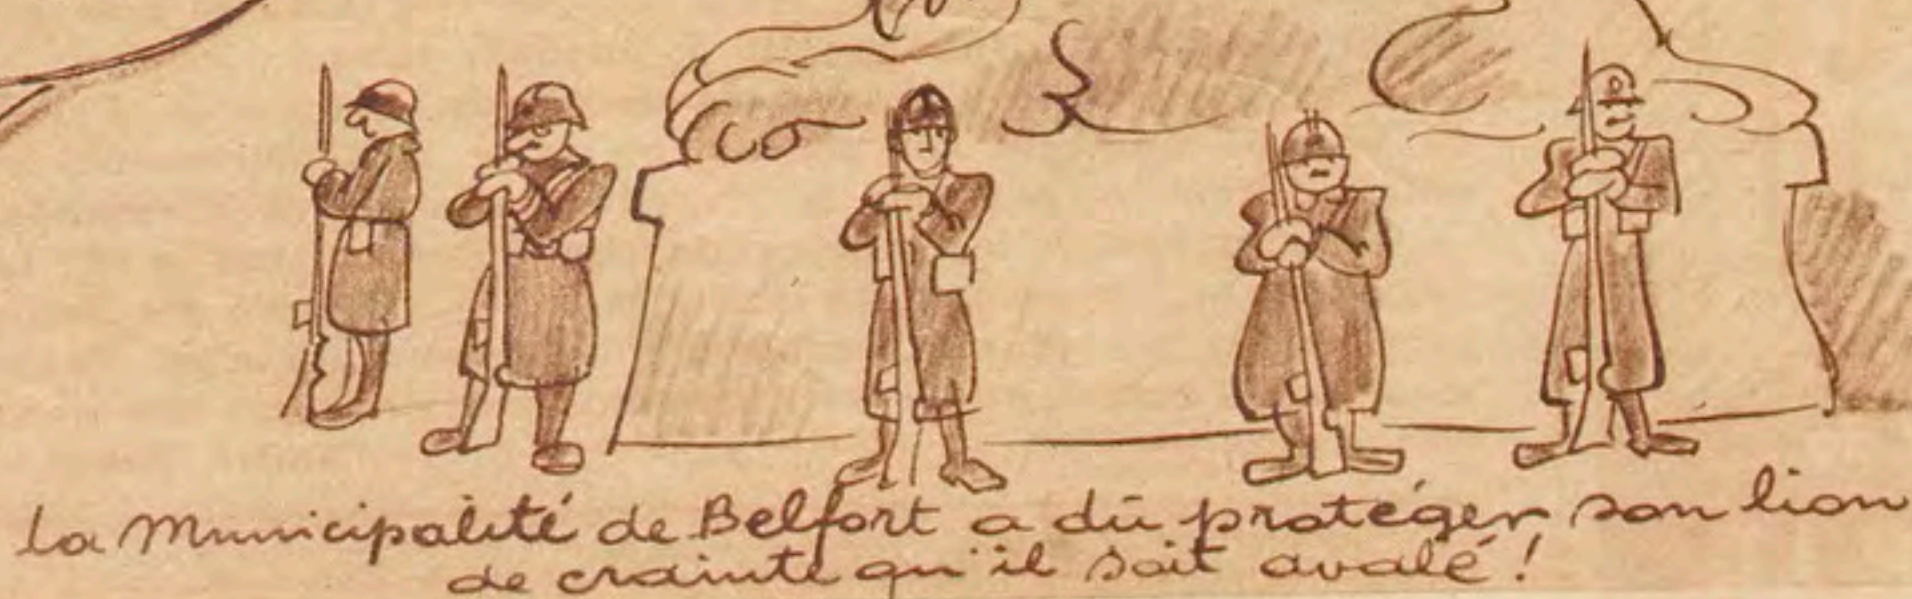 La Municipalité de Belfort a dû protéger son lion
de crainte qu'il soit avalé !